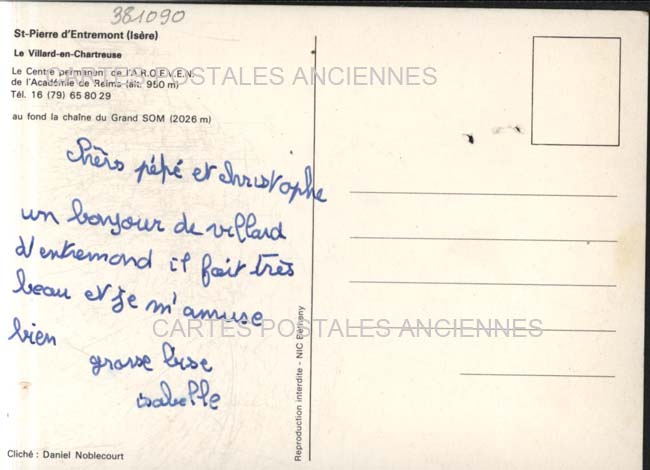 381090
St-Pierre d'Entremont (Isère)
Le Villard-en-Chartreuse
Le Centre permanent de l'A.R.O.E.V.E.N.
de l'Académie de Reims (alt. 950 m)
Tél. 16 (79) 65 80 29
au fond la chaîne du Grand SOM (2026 m)
CARTES POSTALES ANCIENNES
chèrs pépé et christophe
un bonjour de villard
d'entremond il fait très
beau et je m'amuse
bien
grosse bise
isabelle
CARTES POSTALES ANCIENNES
Reproduction interdite - NIC Bétheny
Cliché : Daniel Noblecourt